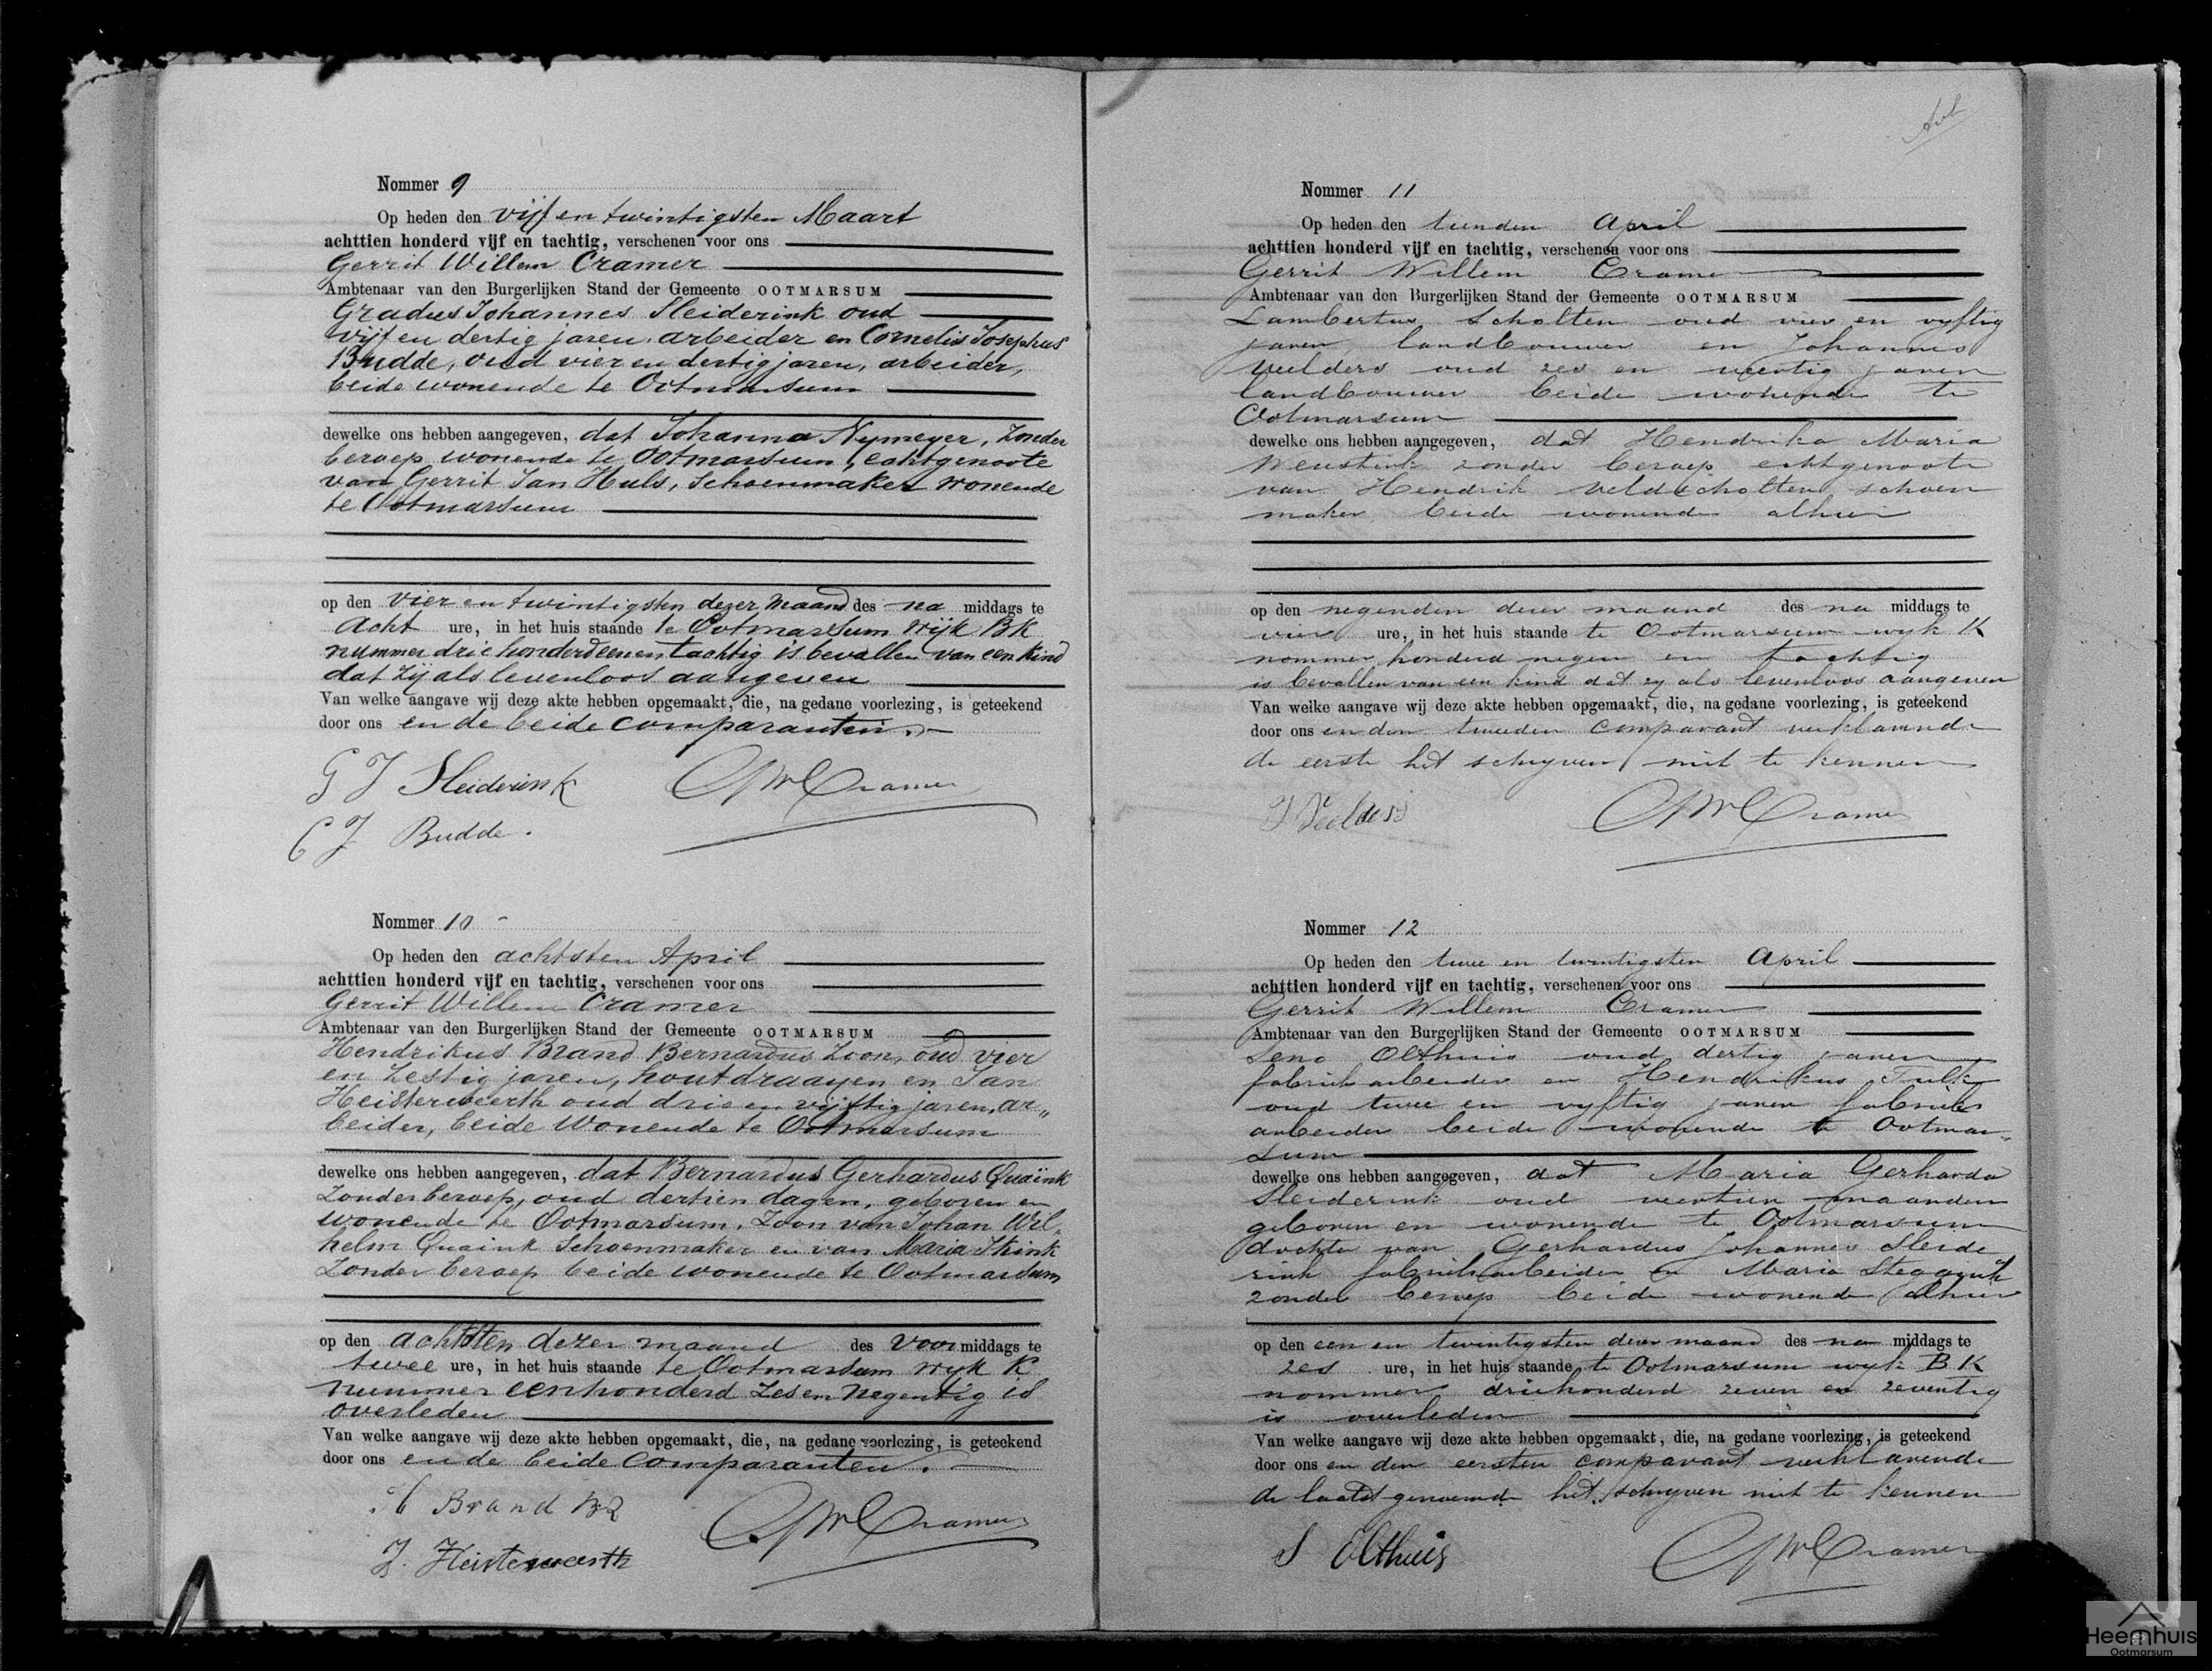 Nommer 9
Op heden den vijf en twintigsten Maart
achttien honderd vijf en tachtig, verschenen voor ons
Gerrit Willem Cramer
Ambtenaar van den Burgerlijken Stand der Gemeente OOTMARSUM
Gradus Johannes Sleiderink oud
vijf en dertig jaren, arbeider en Cornelis Josephus
Budde, oud vier en dertig jaren, arbeider,
beide wonende te Ootmarsum
dewelke ons hebben aangegeven, dat Johanna Nymeyer, zonder
beroep wonende te Ootmarsum, echtgenoote
van Gerrit Jan Huls, Schoenmaker wonende
te Ootmarsum
op den vier en twintigsten dezer maand des na middags te
acht ure, in het huis staande te Ootmarsum wijk BK
nummer drie honderd een en tachtig is bevallen van een kind
dat zij als levenloos aangeven
Van welke aangave wij deze akte hebben opgemaakt, die, na gedane voorlezing, is geteekend
door ons en de beide comparanten.
G J Sleiderink GW Cramer
C J Budde.
Nommer 10
Op heden den achtsten April
achttien honderd vijf en tachtig, verschenen voor ons
Gerrit Willem Cramer
Ambtenaar van den Burgerlijken Stand der Gemeente OOTMARSUM
Hendrikus Brand Bernardus Zoon, oud vier
en Zestig jaren, houtdraayen en Jan
Heisterweerth oud drie en vijftig jaren, ar„
beider, beide Wonende te Ootmarsum
dewelke ons hebben aangegeven, dat Bernardus Gerhardus Quaink
Zonder beroep, oud dertien dagen, geboren en
wonende te Ootmarsum, Zoon van Johan Wil„
helm Quaink Schoenmaker en van Maria
Zonder beroep beide wonende te Ootmarsum
op den achtsten dezer maand des Voor middags te
twee ure, in het huis staande te Ootmarsum wyk K
nummer eenhonderd Zes en Negentig is
overleden
Van welke aangave wij deze akte hebben opgemaakt, die, na gedane voorlezing, is geteekend
door ons en de beide Comparanten.
H Brand BZ GW Cramer
J. Heisterweerth
Nommer 11
Op heden den tienden April
achttien honderd vijf en tachtig, verschenen voor ons
Gerrit Willem Cramer
Ambtenaar van den Burgerlijken Stand der Gemeente OOTMARSUM
Lambertus Scholten oud vier en vyftig
jaren, landbouwer en Johannes
Veelders oud zes en veertig jaren
landbouwer beide wonende te
Ootmarsum
dewelke ons hebben aangegeven, dat Hendrika Maria
zonder beroep echtgenoote
van Hendrik Veldscholten schoen
maker beide wonende alhier
op den negenden dezer maand des na middags te
vier ure, in het huis staande te Ootmarsum wyk K
nommer honderd negen en tachtig
is bevallen van een kind dat zy als levenloos aangeven
Van welke aangave wij deze akte hebben opgemaakt, die, na gedane voorlezing, is geteekend
door ons en den tweeden comparant verklarende
de eerste het schryven niet te kennen
J Veelders GW Cramer
Nommer 12
Op heden den twee en twintigsten April
achttien honderd vijf en tachtig, verschenen voor ons
Gerrit Willem Cramer
Ambtenaar van den Burgerlijken Stand der Gemeente OOTMARSUM
Seno Olthuis oud dertig jaren
fabriek arbeider en Hendrikus
oud twee en vyftig jaren fabriek
arbeider beide wonende te Ootmar„
sum
dewelke ons hebben aangegeven, dat Maria Gerharda
Sleiderink oud veertien maanden
geboren en wonende te Ootmarsum
dochter van Gerhardus Johannes Sleide
rink fabriekarbeider en Maria Steggink
zonder beroep beide wonende alhier
op den een en twintigsten dezer maand des na middags te
zes ure, in het huis staande te Ootmarsum wyk BK
nommer driehonderd zeven en zeventig
is overleden
Van welke aangave wij deze akte hebben opgemaakt, die, na gedane voorlezing, is geteekend
door ons en den eersten comparant verklarende
de laatst genoemde het schryven niet te kennen
S Olthuis GW Cramer
Heemhuis
Ootmarsum